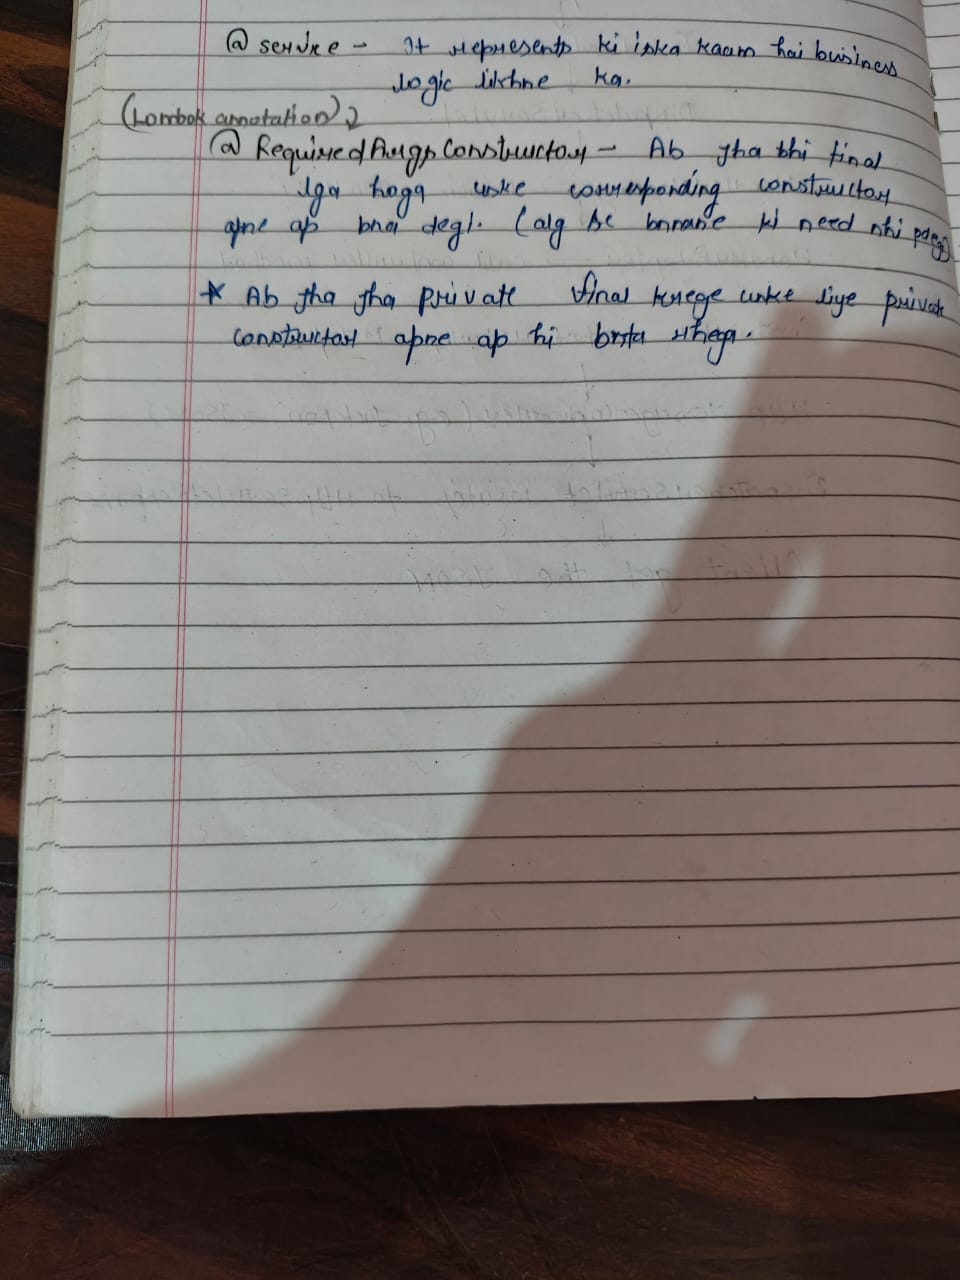 @ service - It represents ki iska kaam hai business
logic likhne ka.
(Lombok annotation)
@ RequiredArgsConstructor - Ab jha bhi final
lga hoga uske corresponding constructor
apne ap bna degi. (alg se bnnane ki need nhi padegi)
* Ab jha jha private final krege unke liye private
constructor apne ap hi bnta rhega.
Client get the JSON